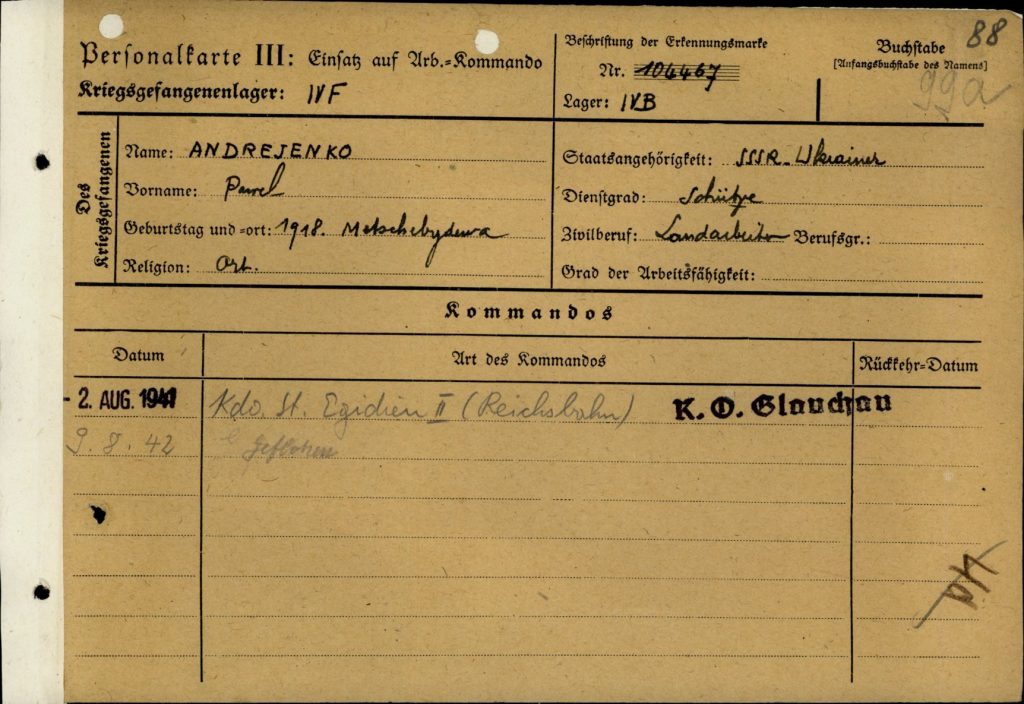 88
Personalkarte III: Einsatz auf Arb.-Kommando
Kriegsgefangenenlager: IVF
Beschriftung der Erkennungsmarke
Nr. 106467
Lager: IVB
Buchstabe
[Anfangsbuchstabe des Namens]
99a
Des Kriegsgefangenen
Name: ANDREJENKO
Vorname: Pawel
Geburtstag und -ort: 1918.
Religion: Ort.
Staatsangehörigkeit: SSSR Ukrainer
Dienstgrad: Schütze
Zivilberuf: Landarbeiter Berufsgr.:
Grad der Arbeitsfähigkeit:
Kommandos
Datum Art des Kommandos Rückkehr-Datum
- 2. AUG. 1941 Kdo. St. Egidien II (Reichsbahn) K. O. Glauchau
9. 8. 42 Geflohen